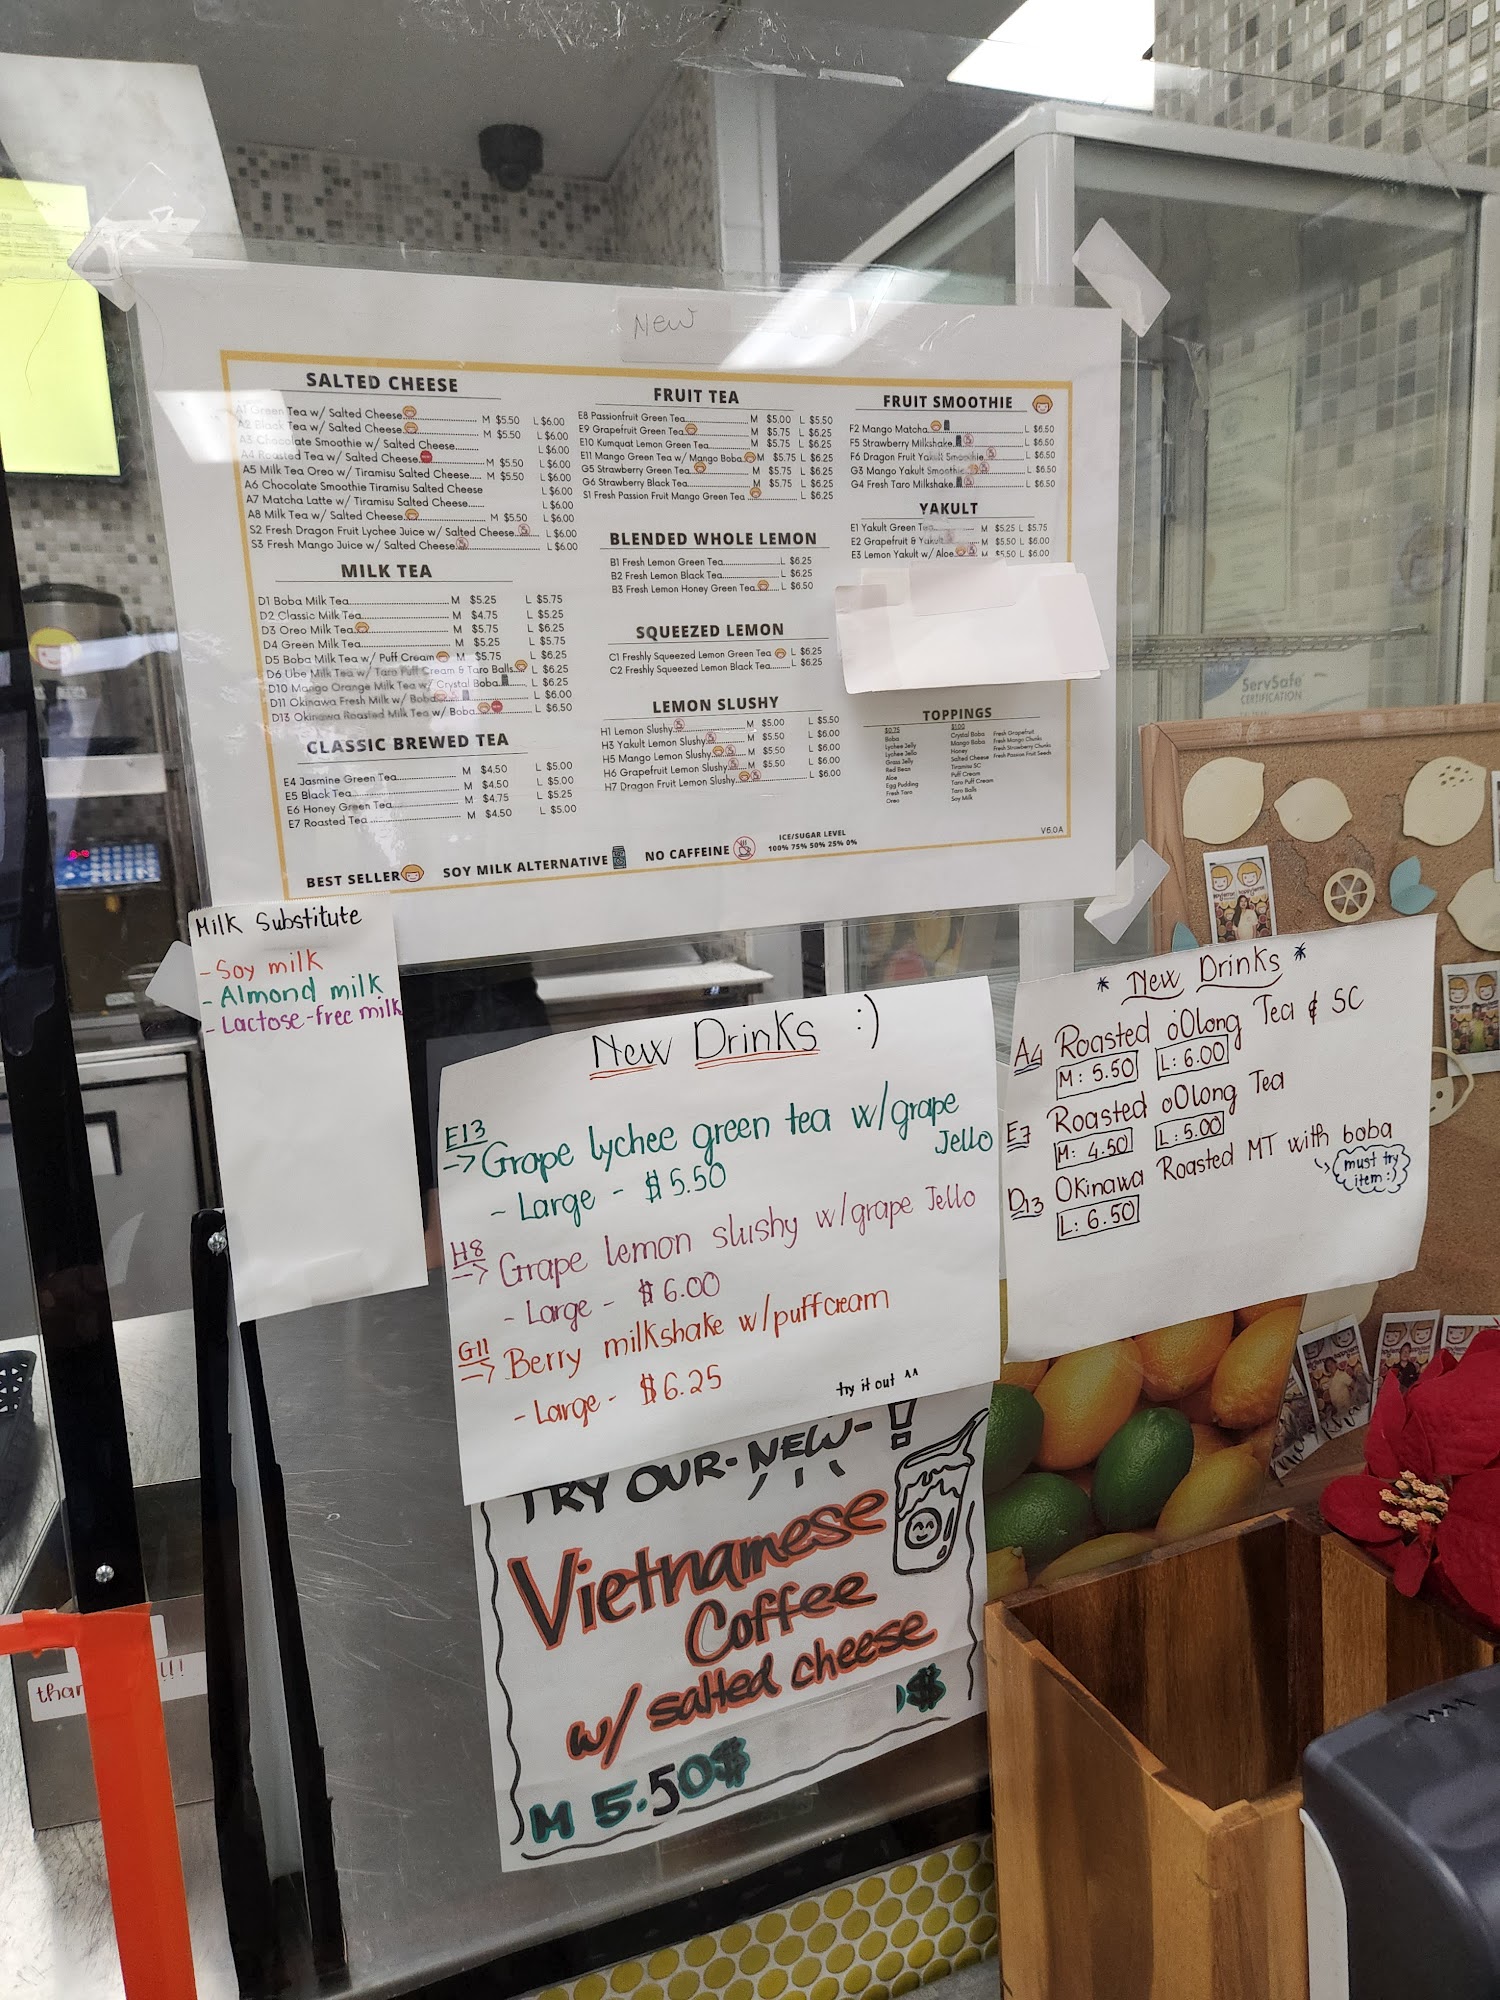 New
SALTED CHEESE
A1 Green Tea w/ Salted Cheese M $5.50 L $6.00
A2 Black Tea w/ Salted Cheese M $5.50 L $6.00
A3 Chocolate Smoothie w/ Salted Cheese L $6.00
A4 Roasted Tea w/ Salted Cheese M $5.50 L $6.00
A5 Milk Tea Oreo w/ Tiramisu Salted Cheese M $5.50 L $6.00
A6 Chocolate Smoothie Tiramisu Salted Cheese L $6.00
A7 Matcha Latte w/ Tiramisu Salted Cheese L $6.00
A8 Milk Tea w/ Salted Cheese M $5.50 L $6.00
S2 Fresh Dragon Fruit Lychee Juice w/ Salted Cheese L $6.00
S3 Fresh Mango Juice w/ Salted Cheese L $6.00
MILK TEA
D1 Boba Milk Tea M $5.25 L $5.75
D2 Classic Milk Tea M $4.75 L $5.25
D3 Oreo Milk Tea M $5.75 L $6.25
D4 Green Milk Tea M $5.25 L $5.75
D5 Boba Milk Tea w/ Puff Cream M $5.75 L $6.25
D6 Ube Milk Tea w/ Taro Puff Cream & Taro Balls L $6.25
D10 Mango Orange Milk Tea w/ Crystal Boba L $6.25
D11 Okinawa Fresh Milk w/ Boba L $6.00
D13 Okinawa Roasted Milk Tea w/ Boba L $6.50
CLASSIC BREWED TEA
E4 Jasmine Green Tea M $4.50 L $5.00
E5 Black Tea M $4.50 L $5.00
E6 Honey Green Tea M $4.75 L $5.25
E7 Roasted Tea M $4.50 L $5.00
FRUIT TEA
E8 Passionfruit Green Tea M $5.00 L $5.50
E9 Grapefruit Green Tea M $5.75 L $6.25
E10 Kumquat Lemon Green Tea M $5.75 L $6.25
E11 Mango Green Tea w/ Mango Boba M $5.75 L $6.25
G5 Strawberry Green Tea M $5.75 L $6.25
G6 Strawberry Black Tea M $5.75 L $6.25
S1 Fresh Passion Fruit Mango Green Tea L $6.25
BLENDED WHOLE LEMON
B1 Fresh Lemon Green Tea L $6.25
B2 Fresh Lemon Black Tea L $6.25
B3 Fresh Lemon Honey Green Tea L $6.50
SQUEEZED LEMON
C1 Freshly Squeezed Lemon Green Tea L $6.25
C2 Freshly Squeezed Lemon Black Tea L $6.25
LEMON SLUSHY
H1 Lemon Slushy M $5.00 L $5.50
H3 Yakult Lemon Slushy M $5.50 L $6.00
H5 Mango Lemon Slushy M $5.50 L $6.00
H6 Grapefruit Lemon Slushy M $5.50 L $6.00
H7 Dragon Fruit Lemon Slushy L $6.00
FRUIT SMOOTHIE
F2 Mango Matcha L $6.50
F5 Strawberry Milkshake L $6.50
F6 Dragon Fruit Yakult Smoothie L $6.50
G3 Mango Yakult Smoothie L $6.50
G4 Fresh Taro Milkshake L $6.50
YAKULT
E1 Yakult Green Tea M $5.25 L $5.75
E2 Grapefruit & Yakult M $5.50 L $6.00
E3 Lemon Yakult w/ Aloe M $5.50 L $6.00
TOPPINGS
$0.75
Boba
Lychee Jelly
Lychee Jello
Grass Jelly
Red Bean
Aloe
Egg Pudding
Fresh Taro
Oreo
$1.00
Crystal Boba
Mango Boba
Honey
Salted Cheese
Tiramisu SC
Puff Cream
Taro Puff Cream
Taro Balls
Soy Milk
Fresh Grapefruit
Fresh Mango Chunks
Fresh Strawberry Chunks
Fresh Passion Fruit Seeds
V6.0A
BEST SELLER SOY MILK ALTERNATIVE NO CAFFEINE
ICE/SUGAR LEVEL
100% 75% 50% 25% 0%
ServSafe
CERTIFICATION
Milk Substitute
- Soy milk
- Almond milk
- Lactose-free milk
New Drinks :)
E13
-> Grape lychee green tea w/grape
Jello
- Large - $5.50
H8
-> Grape lemon slushy w/grape Jello
- Large - $6.00
G11
-> Berry milkshake w/puffcream
- Large - $6.25
try it out ^^
* New Drinks *
A4 Roasted oOlong Tea & SC
M: 5.50 L: 6.00
E7 Roasted oOlong Tea
M: 4.50 L: 5.00
D13 Okinawa Roasted MT with boba
must try
item :)
L: 6.50
TRY OUR-NEW-!
Vietnamese
Coffee
w/ salted cheese
$
M 5.50$